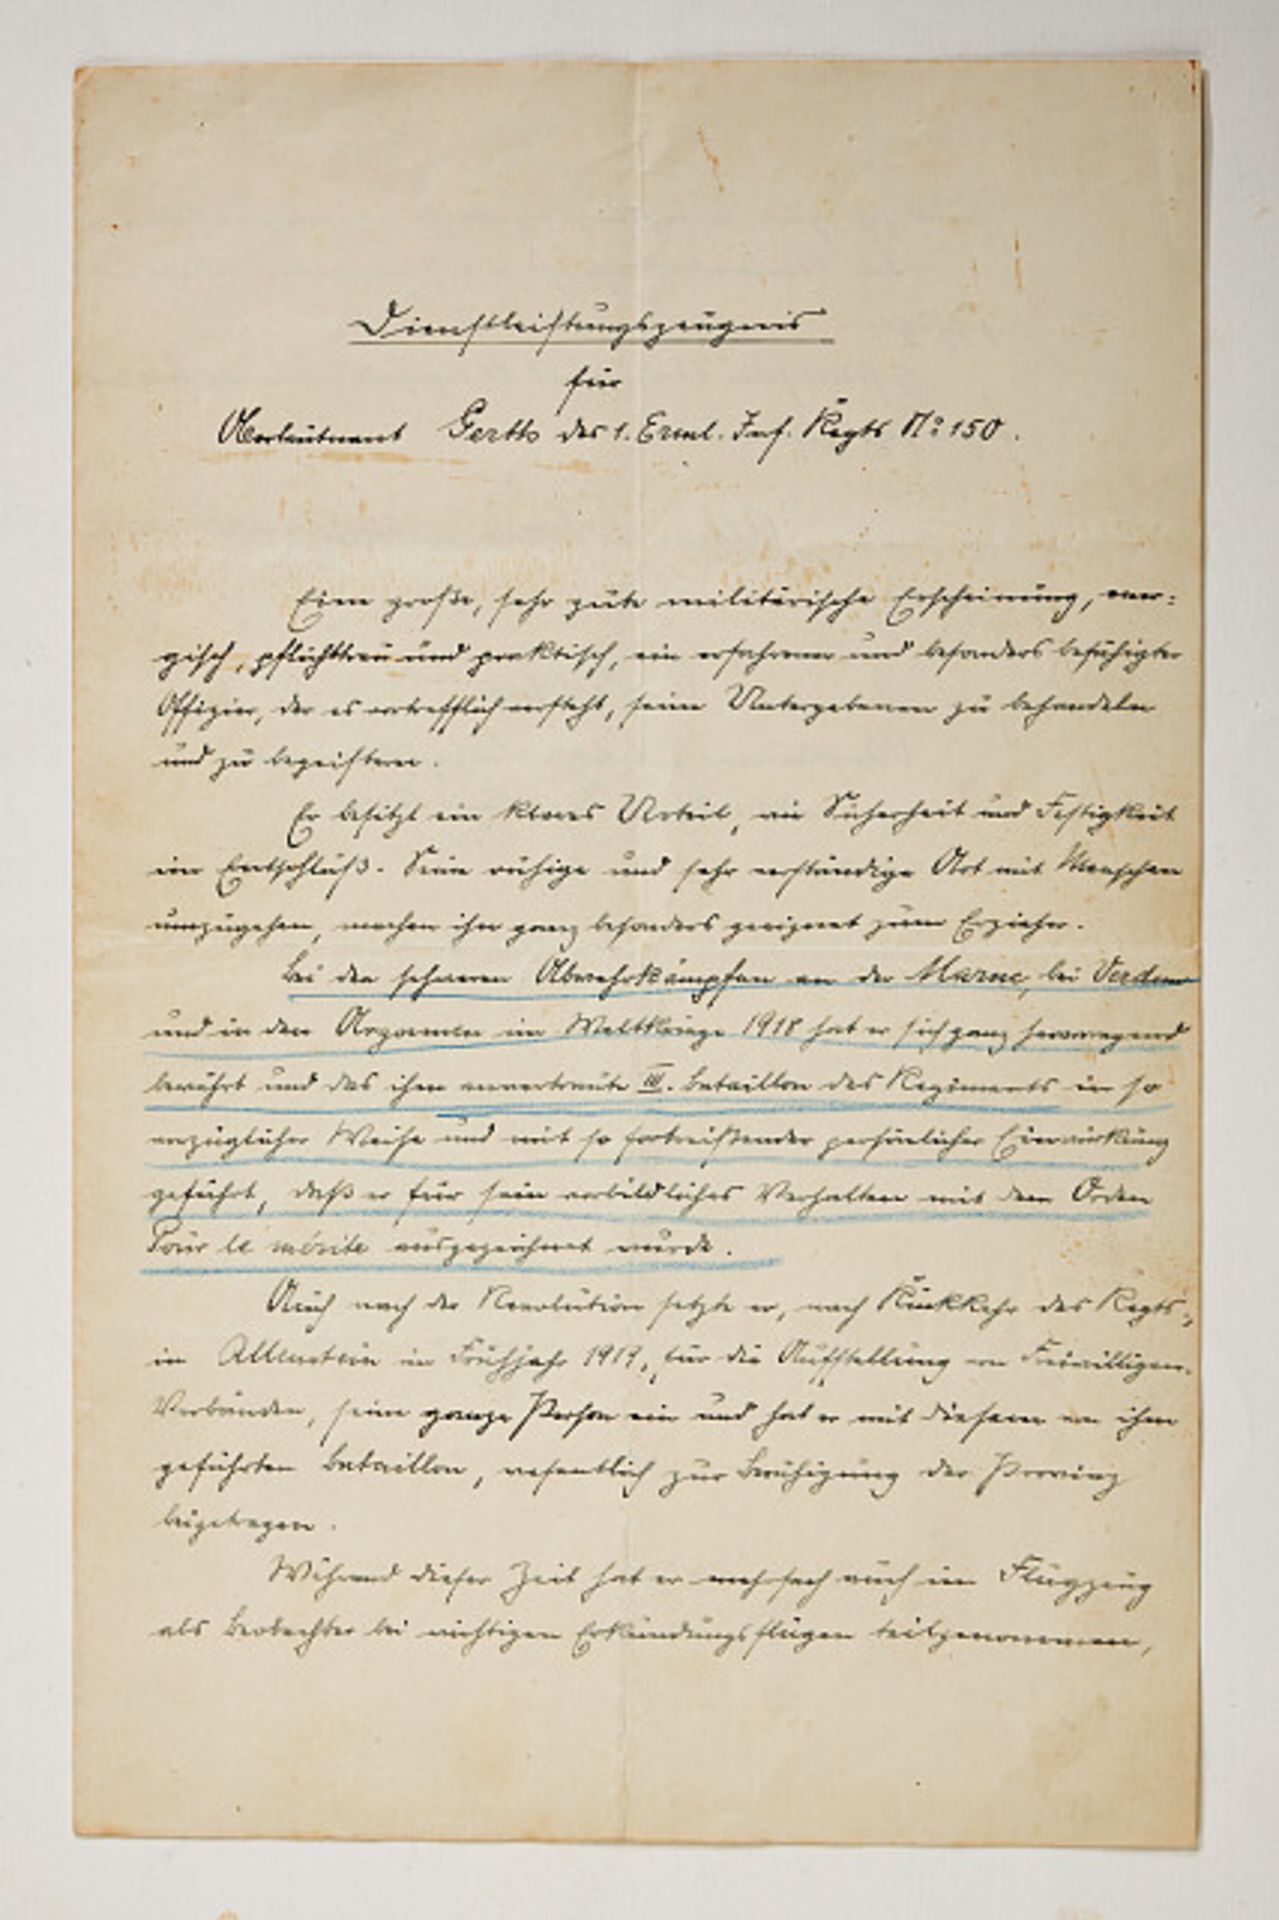 Dienstleistungszeugnis
für
Oberleutnant Gerth des 1. Erml. Inf. Regts No 150.
Eine große, sehr gute militärische Erscheinung, ener-
gisch, pflichttreu und praktisch, ein erfahrener und besonders befähigter
Offizier, der es vortrefflich versteht, seine Untergebenen zu behandeln
und zu begeistern.
Er besitzt ein klares Urteil, wie Sicherheit und Festigkeit
im Entschluß. Seine ruhige und sehr verständige Art mit Menschen
umzugehen, machen ihn ganz besonders geeignet zum Erzieher.
Bei den schweren Abwehrkämpfen an der Marne, bei Verdun
und in den Argonnen im Weltkriege 1918 hat er sich ganz hervorragend
bewährt und das ihm anvertraute III. Bataillon des Regiments in so
vorzüglicher Weise und mit so fortreißender persönlicher Einwirkung
geführt, daß er für sein vorbildliches Verhalten mit dem Orden
Pour le mérite ausgezeichnet wurde.
Auch nach der Revolution setzte er, nach Rückkehr des Regts.,
in Allenstein im Frühjahr 1919, für die Aufstellung von Freiwilligen-
Verbänden, seine ganze Person ein und hat er mit diesem von ihm
geführten Bataillon, wesentlich zur Beruhigung der Provinz
beigetragen.
Während dieser Zeit hat er mehrfach auch im Flugzeug
als Beobachter bei wichtigen Erkundungsflügen teilgenommen,